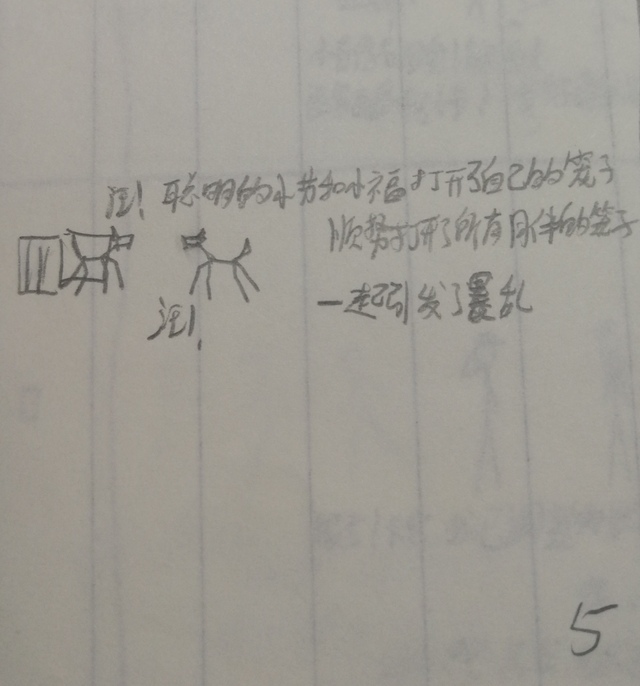 汪！聪明的小芳和小福打开了自己的笼子
顺势打开了所有同伴的笼子
一起引发了暴乱
汪！
5